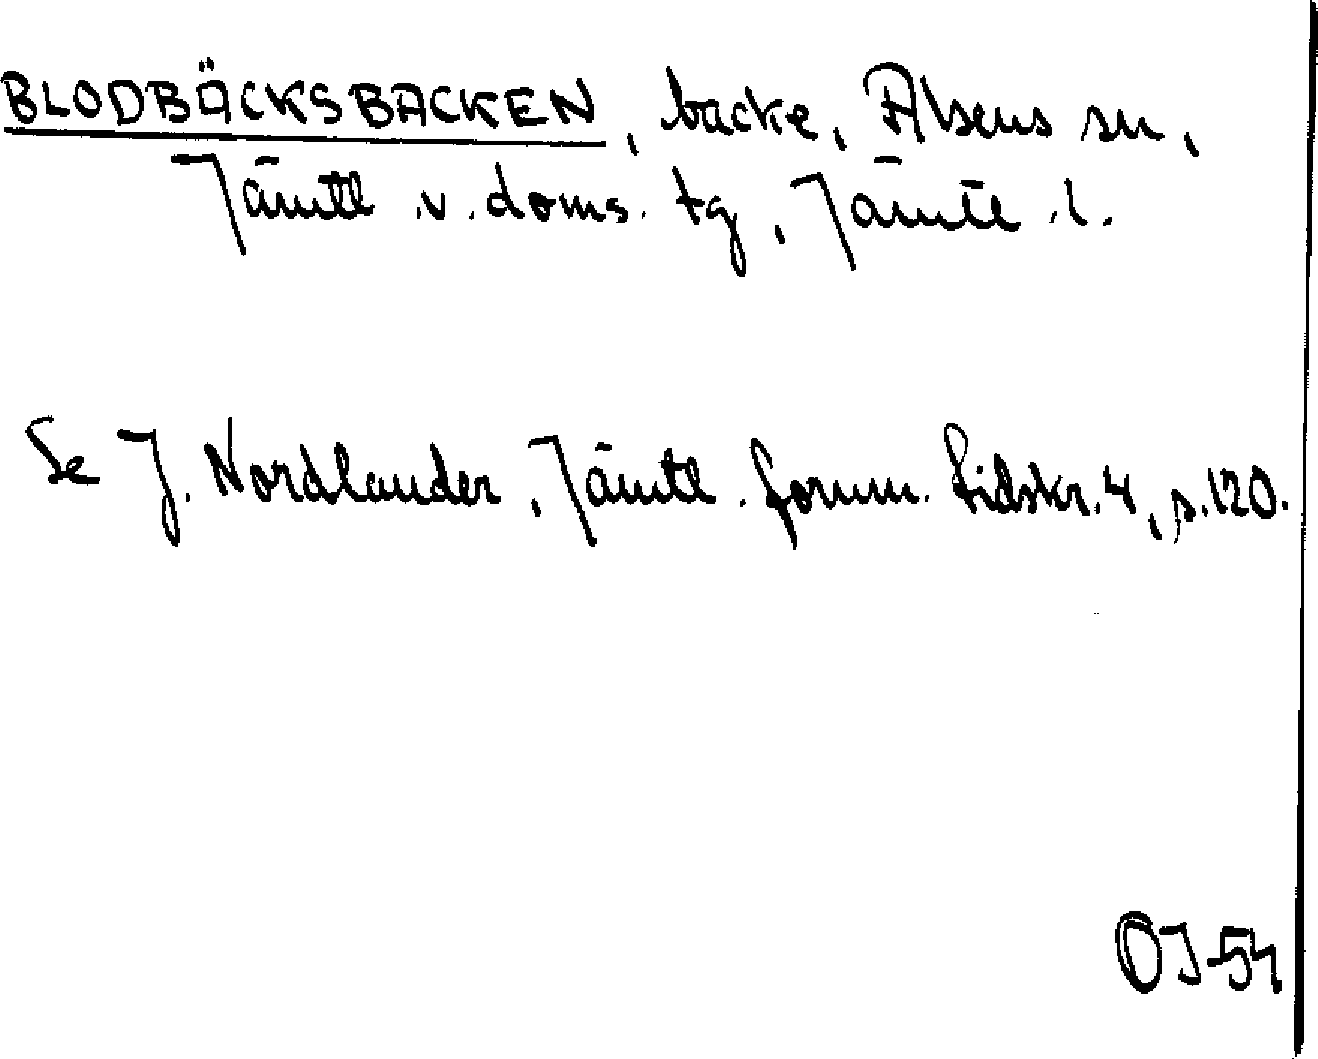 BLODBÄCKSBACKEN, backe, Alsens sn,
Jämtl. v. doms. tg, Jämtl. l.
Se J. Nordlander, Jämtl. fornm. tidskr. 4, s. 120.
OJ-54